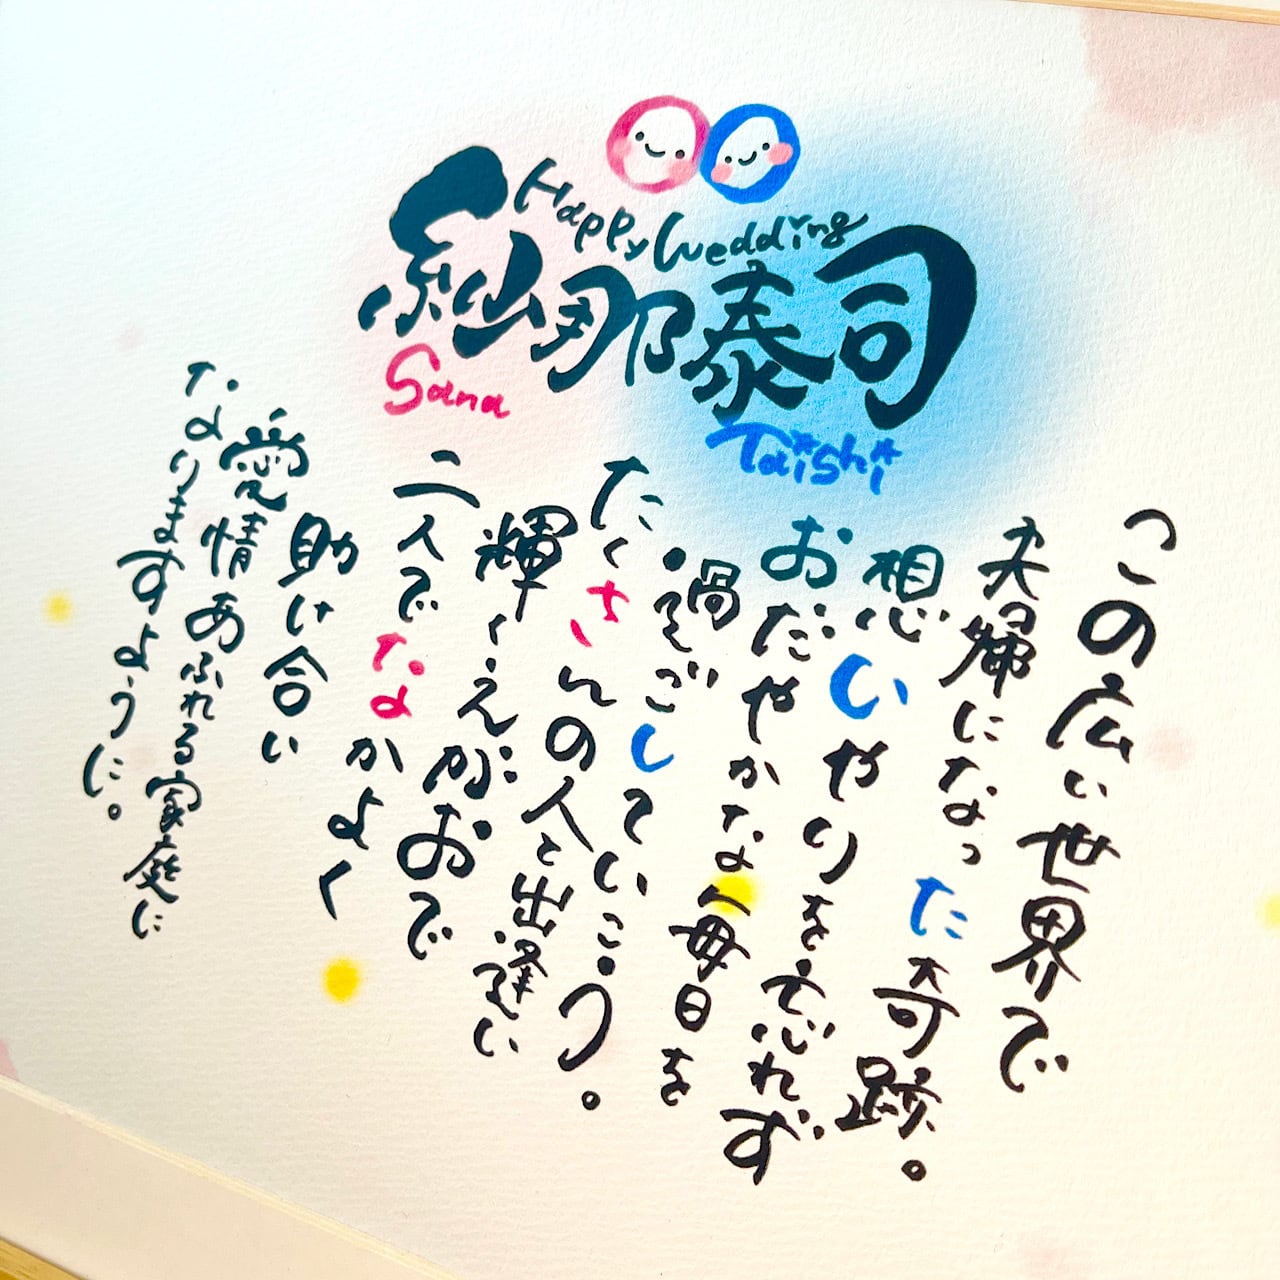 Happy Wedding
紗那 泰司
Sana
Taishi
この広い世界で
夫婦になった奇跡。
想いやりを忘れず
おだやかな毎日を
過ごしていこう。
たくさんの人と出逢い
輝くえがおで
二人でなかよく
助け合い
愛情あふれる家庭に
なりますように。